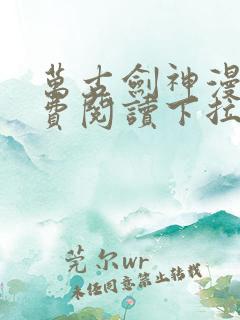 萬古劍神漫
費閱讀下拉
莞尔wr
未经同意禁止转载